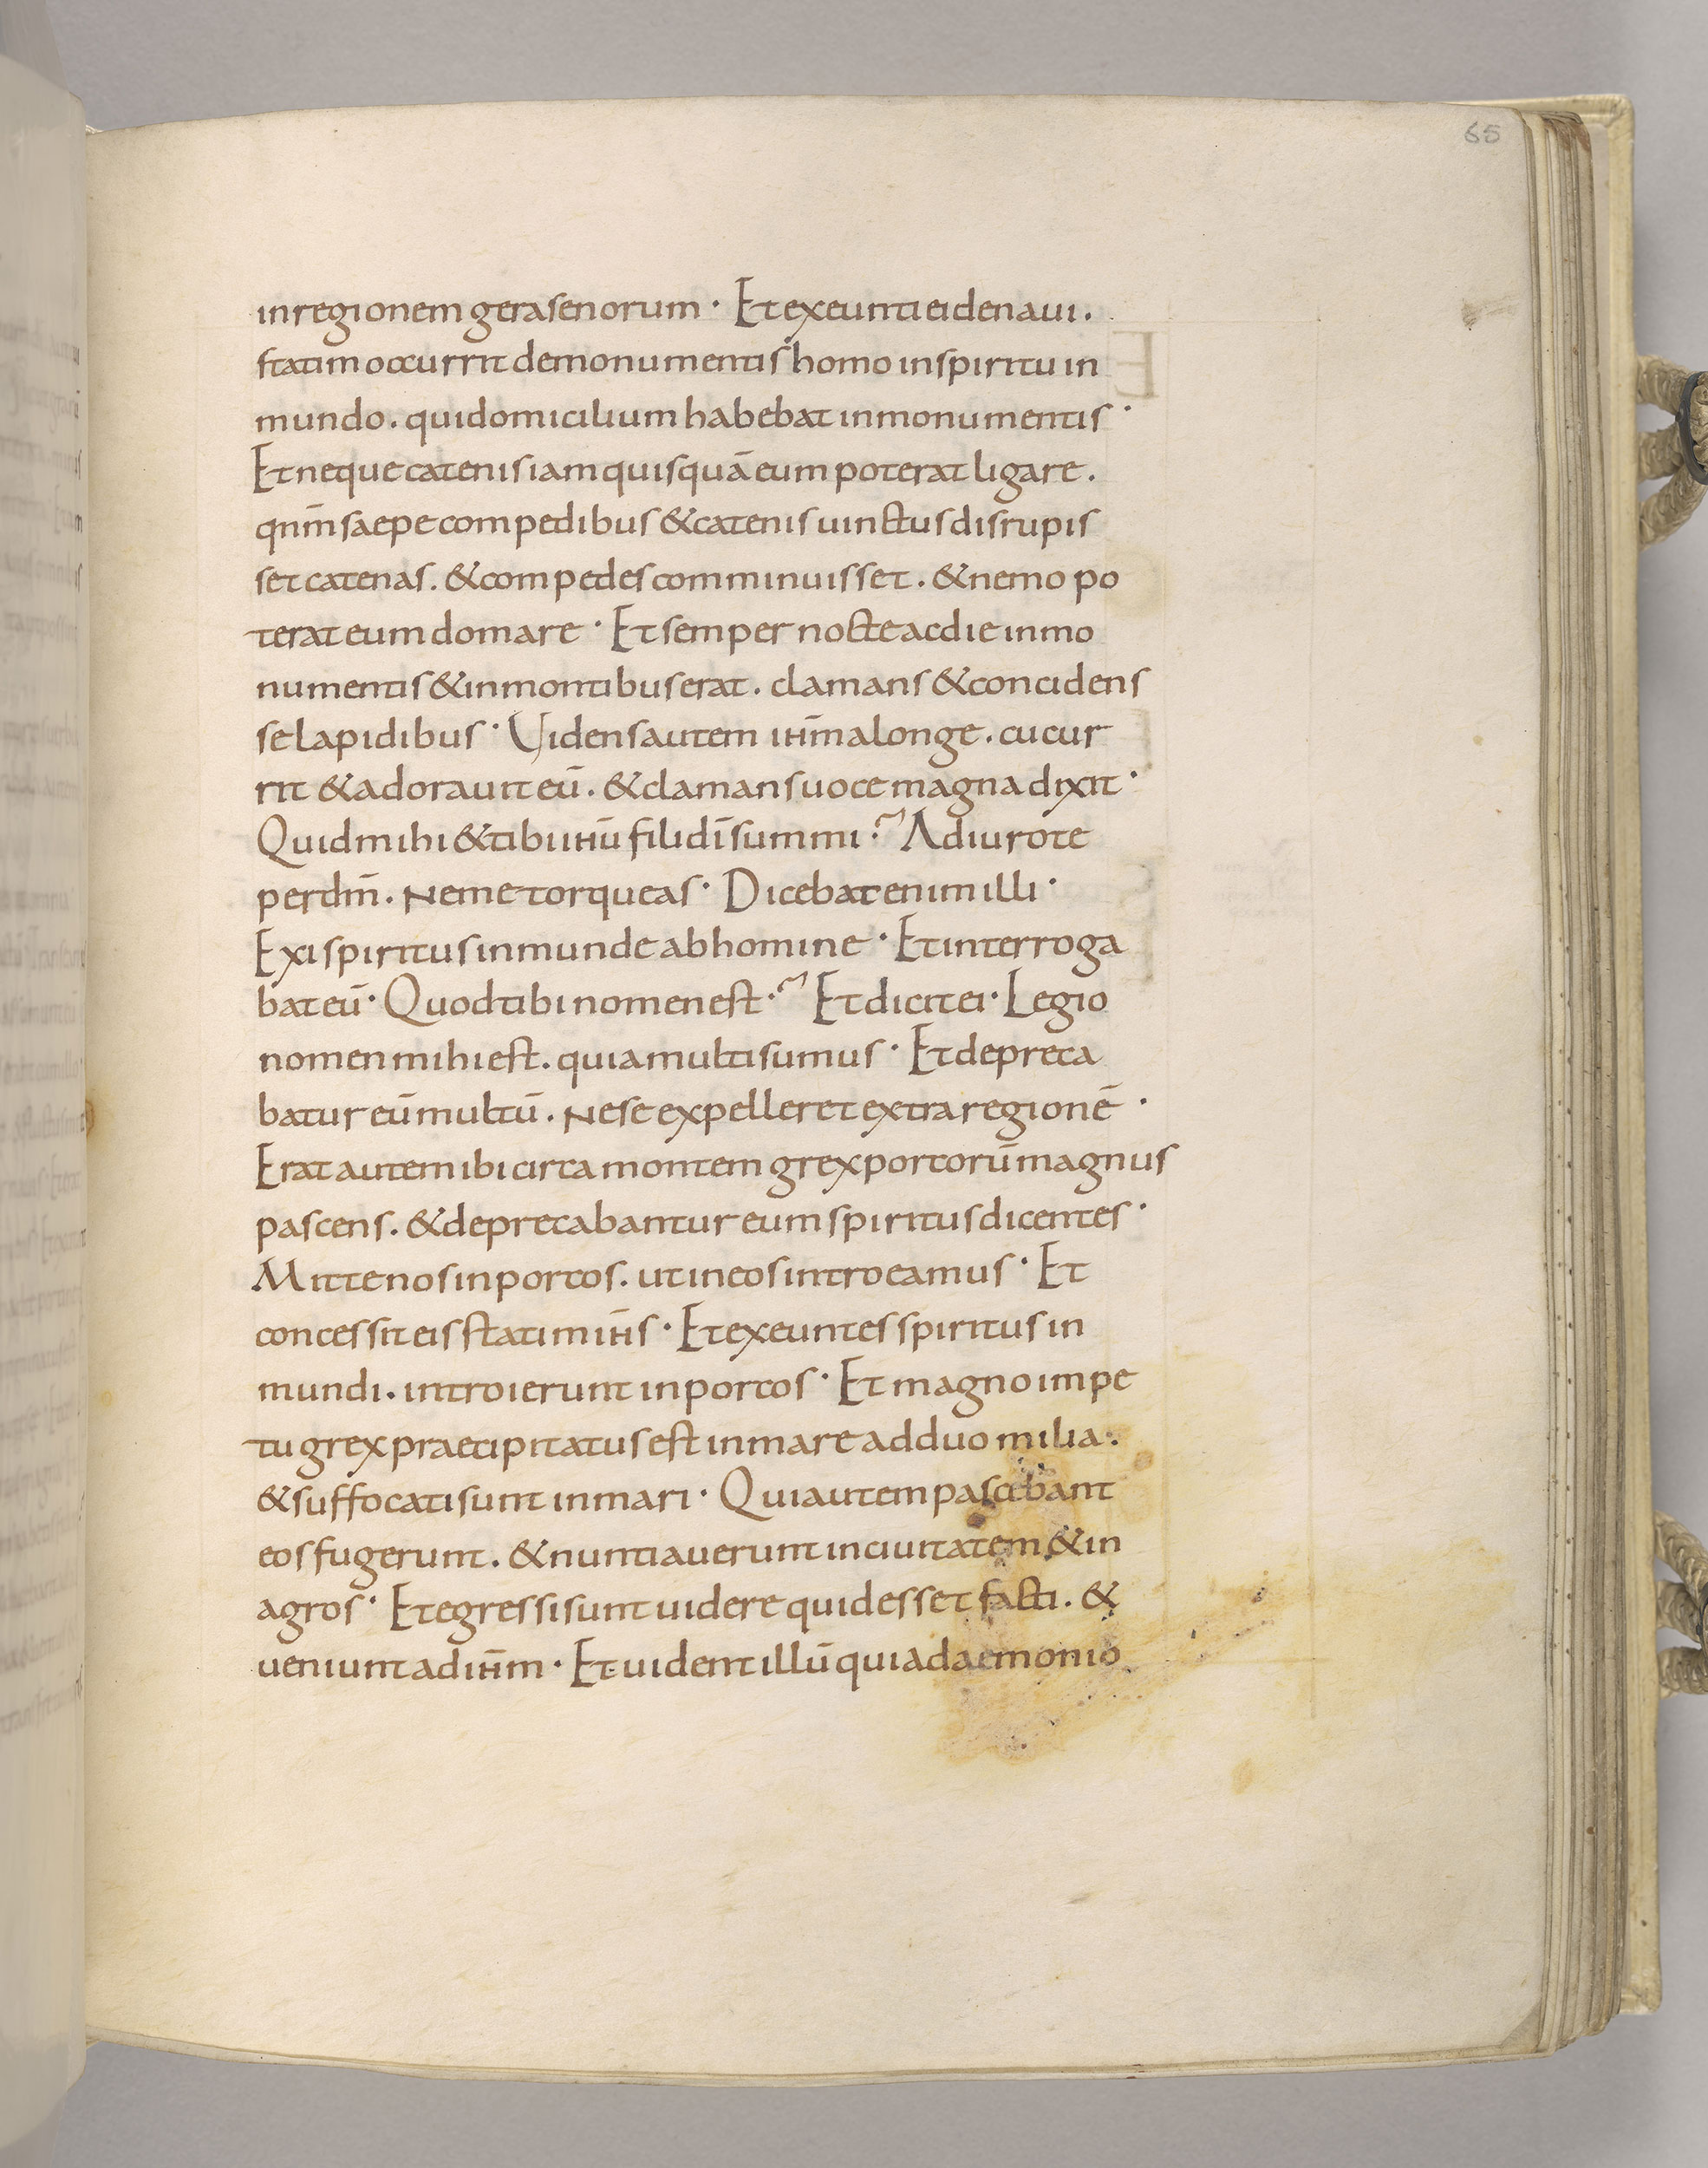 65
in regionem gerasenorum · Et exeunti ei de naui .
statim occurrit de monumentis homo in spiritu in
mundo . qui domicilium habebat in monumentis ·
Et neque catenis iam quisquā eum poterat ligare .
qnm̄ saepe compedibus & catenis uinctus disrupis
set catenas . & compedes comminuisset . & nemo po
terat eum domare · Et semper nocte ac die in mo
numentis & in montibus erat . clamans & concidens
se lapidibus · Uidens autem ihm̄ a longe . cucur
rit & adorauit eū . & clamans uoce magna dixit ·
Quid mihi & tibi ihū fili dī summi ? Adiuro te
per dm̄ . Ne me torqueas · Dicebat enim illi ·
Exi spiritus inmunde ab homine · Et interroga
bat eū · Quod tibi nomen est ? Et dicit ei · Legio
nomen mihi est . quia multi sumus · Et depreca
batur eū multū . Ne se expelleret extra regionē ·
Erat autem ibi circa montem grex porcorū magnus
pascens . & deprecabantur eum spiritus dicentes ·
Mitte nos in porcos . ut in eos introeamus · Et
concessit eis statim ihs̄ · Et exeuntes spiritus in
mundi . introierunt in porcos · Et magno impe
tu grex praecipitatus est in mare ad duo milia .
& suffocati sunt in mari · Qui autem pascebant
eos fugerunt . & nuntiauerunt in ciuitatem & in
agros · Et egressi sunt uidere quid esset facti . &
ueniunt ad ihm̄ · Et uident illū qui a daemonio